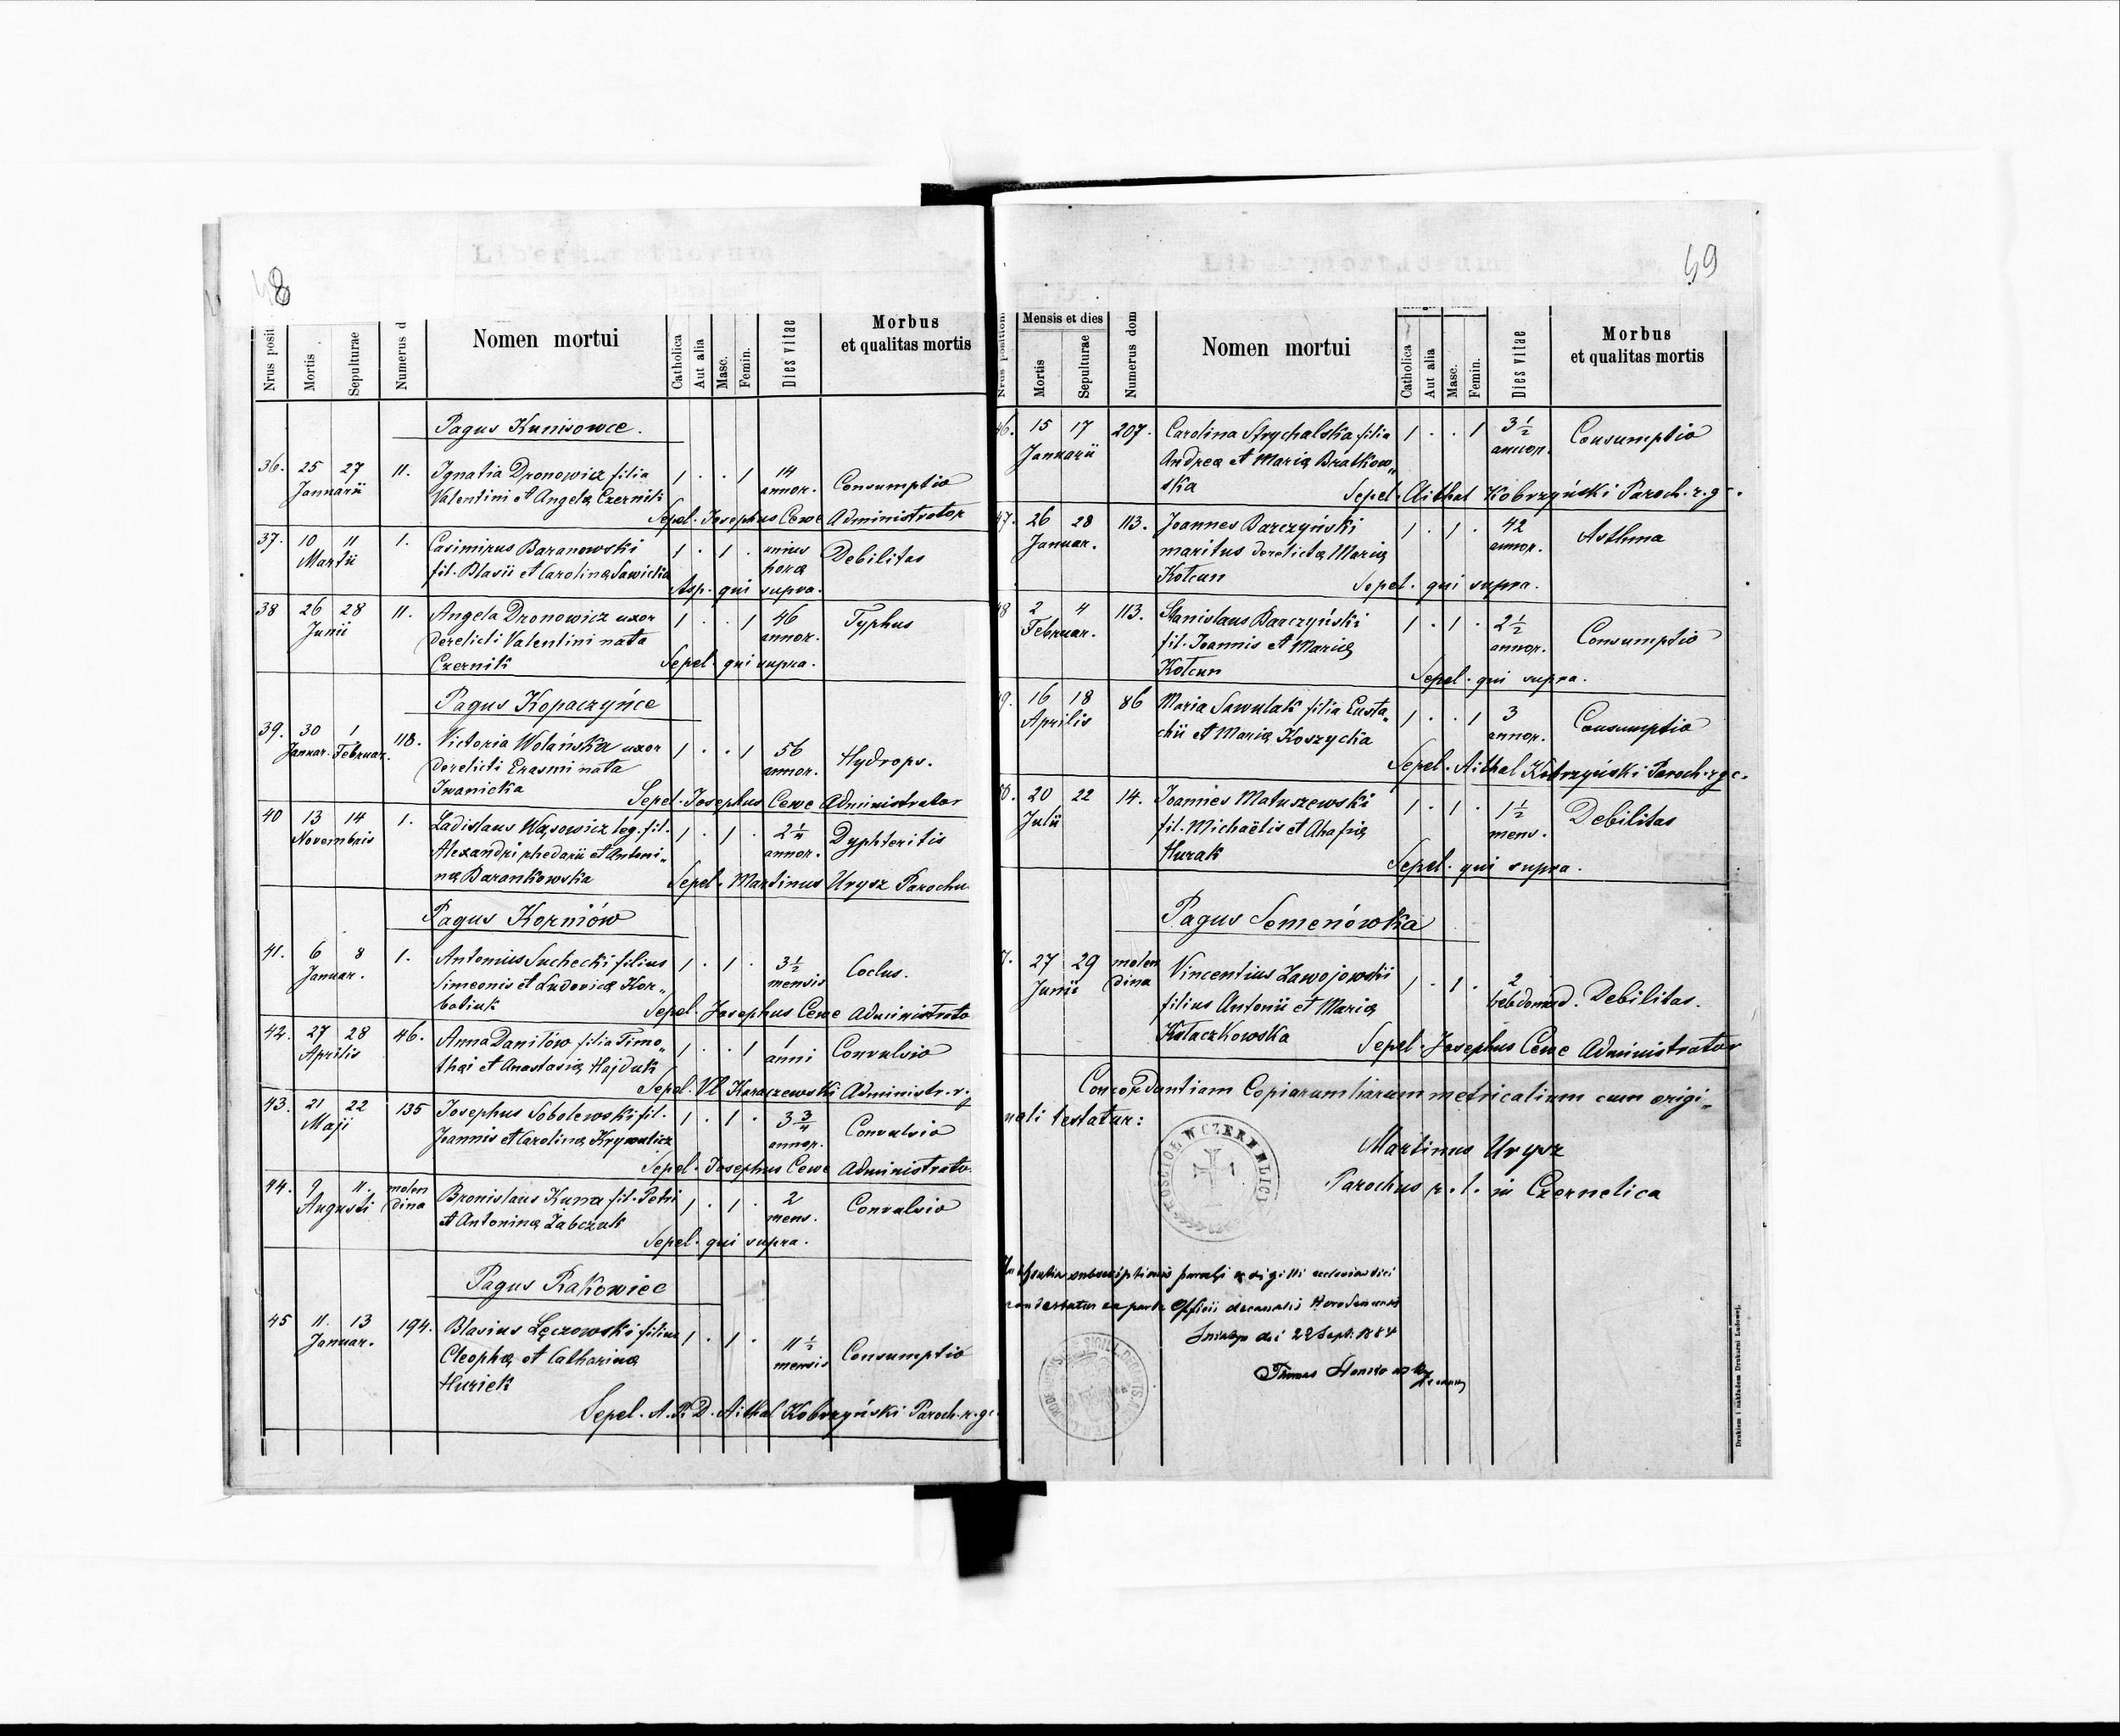 48
Nrus posit
Mortis
Sepulturae
Numerus d
Nomen mortui
Catholica
Aut alia
Masc.
Femin.
Dies vitae
Morbus
et qualitas mortis
Pagus Kunisowce.
36. 25 27 11. Ignatia Dronowicz filia 1 . . 1 14
Januarii Valentini et Angelæ Czernik annor. Consumptio
Sepel. Josephus Cewe Administrator
37. 10 11 1. Casimirus Baranowski 1 . 1 . unius Debilitas
Martii fil. Blasii et Carolinæ Sawicka horæ
Asp. qui supra.
38 26 28 11. Angela Dronowicz uxor 1 . . 1 46 Typhus
Junii derelicti Valentini nata annor.
Czernik Sepel. qui supra.
Pagus Kopaczyńce
39. 30 1 118. Victoria Wolańska uxor 1 . . 1 56 Hydrops.
Januar. Februar. derelicti Erasmi nata annor.
Iwanicka Sepel. Josephus Cewe Administrator
40 13 14 1. Ladislaus Wąsowicz leg. fil. 1 . 1 . 2 1/4 Dyphteritis
Novembris Alexandri rhedarii et Antoni„ annor.
næ Barankowska Sepel. Martinus Urysz Parochu
Pagus Korniów
41. 6 8 1. Antonius Suchecki filius 1 . 1 . 3 1/2 Coclus.
Januar. Simeonis et Ludovicæ Kor„ mensis
botiuk Sepel. Josephus Cewe Administrato
42. 27 28 46. Anna Danilów filia Timo„ 1 . . 1 1 Convulsio
Aprilis thæi et Anastasiæ Hajduk anni
Sepel. Vl Karaczewski Administr. r.g
43. 21 22 135 Josephus Sobolewski fil. 1 . 1 . 3 3/4 Convulsio
Maji Joannis et Carolinæ Krywulicz annor.
Sepel. Josephus Cewe Administrato
44. 9 11. molen Bronislaus Kuma fil. Petri 1 . 1 . 2 Convulsio
Augusti dina et Antoninæ Żabczuk mens.
Sepel. qui supra.
Pagus Rakowiec
45 11. 13 194. Blasius Łęczowski filius 1 . 1 . 11 1/2 Consumptio
Januar. Cleophæ et Catharinæ mensis
Huriek
Sepel. A. R. D. Aithal Kobrzyński Paroch. r. gr
49
Nrus position
Mensis et dies
Mortis
Sepulturae
Numerus dom
Nomen mortui
Catholica
Aut alia
Masc.
Femin.
Dies vitae
Morbus
et qualitas mortis
46. 15 17 207. Carolina Strychalska filia 1 . . 1 3 1/2 Consumptio
Januarii Andreæ et Mariæ Bratkow„ annor.
ska Sepel. Aithal Kobrzyński Paroch. r. gr.
47. 26 28 113. Joannes Barczyński 1 . 1 . 42 Asthma
Januar. maritus derelictæ Mariæ annor.
Kotcun Sepel. qui supra.
48 2 4 113. Stanislaus Barczyński 1 . 1 . 2 1/2 Consumptio
Februar. fil. Joannis et Mariæ annor.
Kotcun Sepel. qui supra.
9. 16 18 86 Maria Sawulak filia Eusta„ 1 . . 1 3 Consumptio
Aprilis chii et Mariæ Koszycka annor.
Sepel. Aithal Kobrzyński Paroch. r. gr.
20 22 14. Joannes Matuszewski 1 . 1 . 1 1/2 Debilitas
Julii fil. Michaëlis et Ahafiæ mens.
Hurak Sepel. qui supra.
Pagus Semenówka
27 29 molen Vincentius Zawojowski 1 . 1 . 2 Debilitas.
Junii dina filius Antonii et Mariæ hebdomad.
Kułaczkowska Sepel. Josephus Cewe Administrator
Concordantiam Copiarum harum metricalium cum origi„
nali testatur:
KOŚCIOŁ W CZERNELICY
Martinus Urysz
Parochus r. l. in Czernelica
subscriptionis parochi et sigilli ecclesiastici
contestatur ex parte Officii decanalis
Sniatyn die 22 Sept. 1884
Thomas
Drukiem i nakładem Drukarni Ludowej.